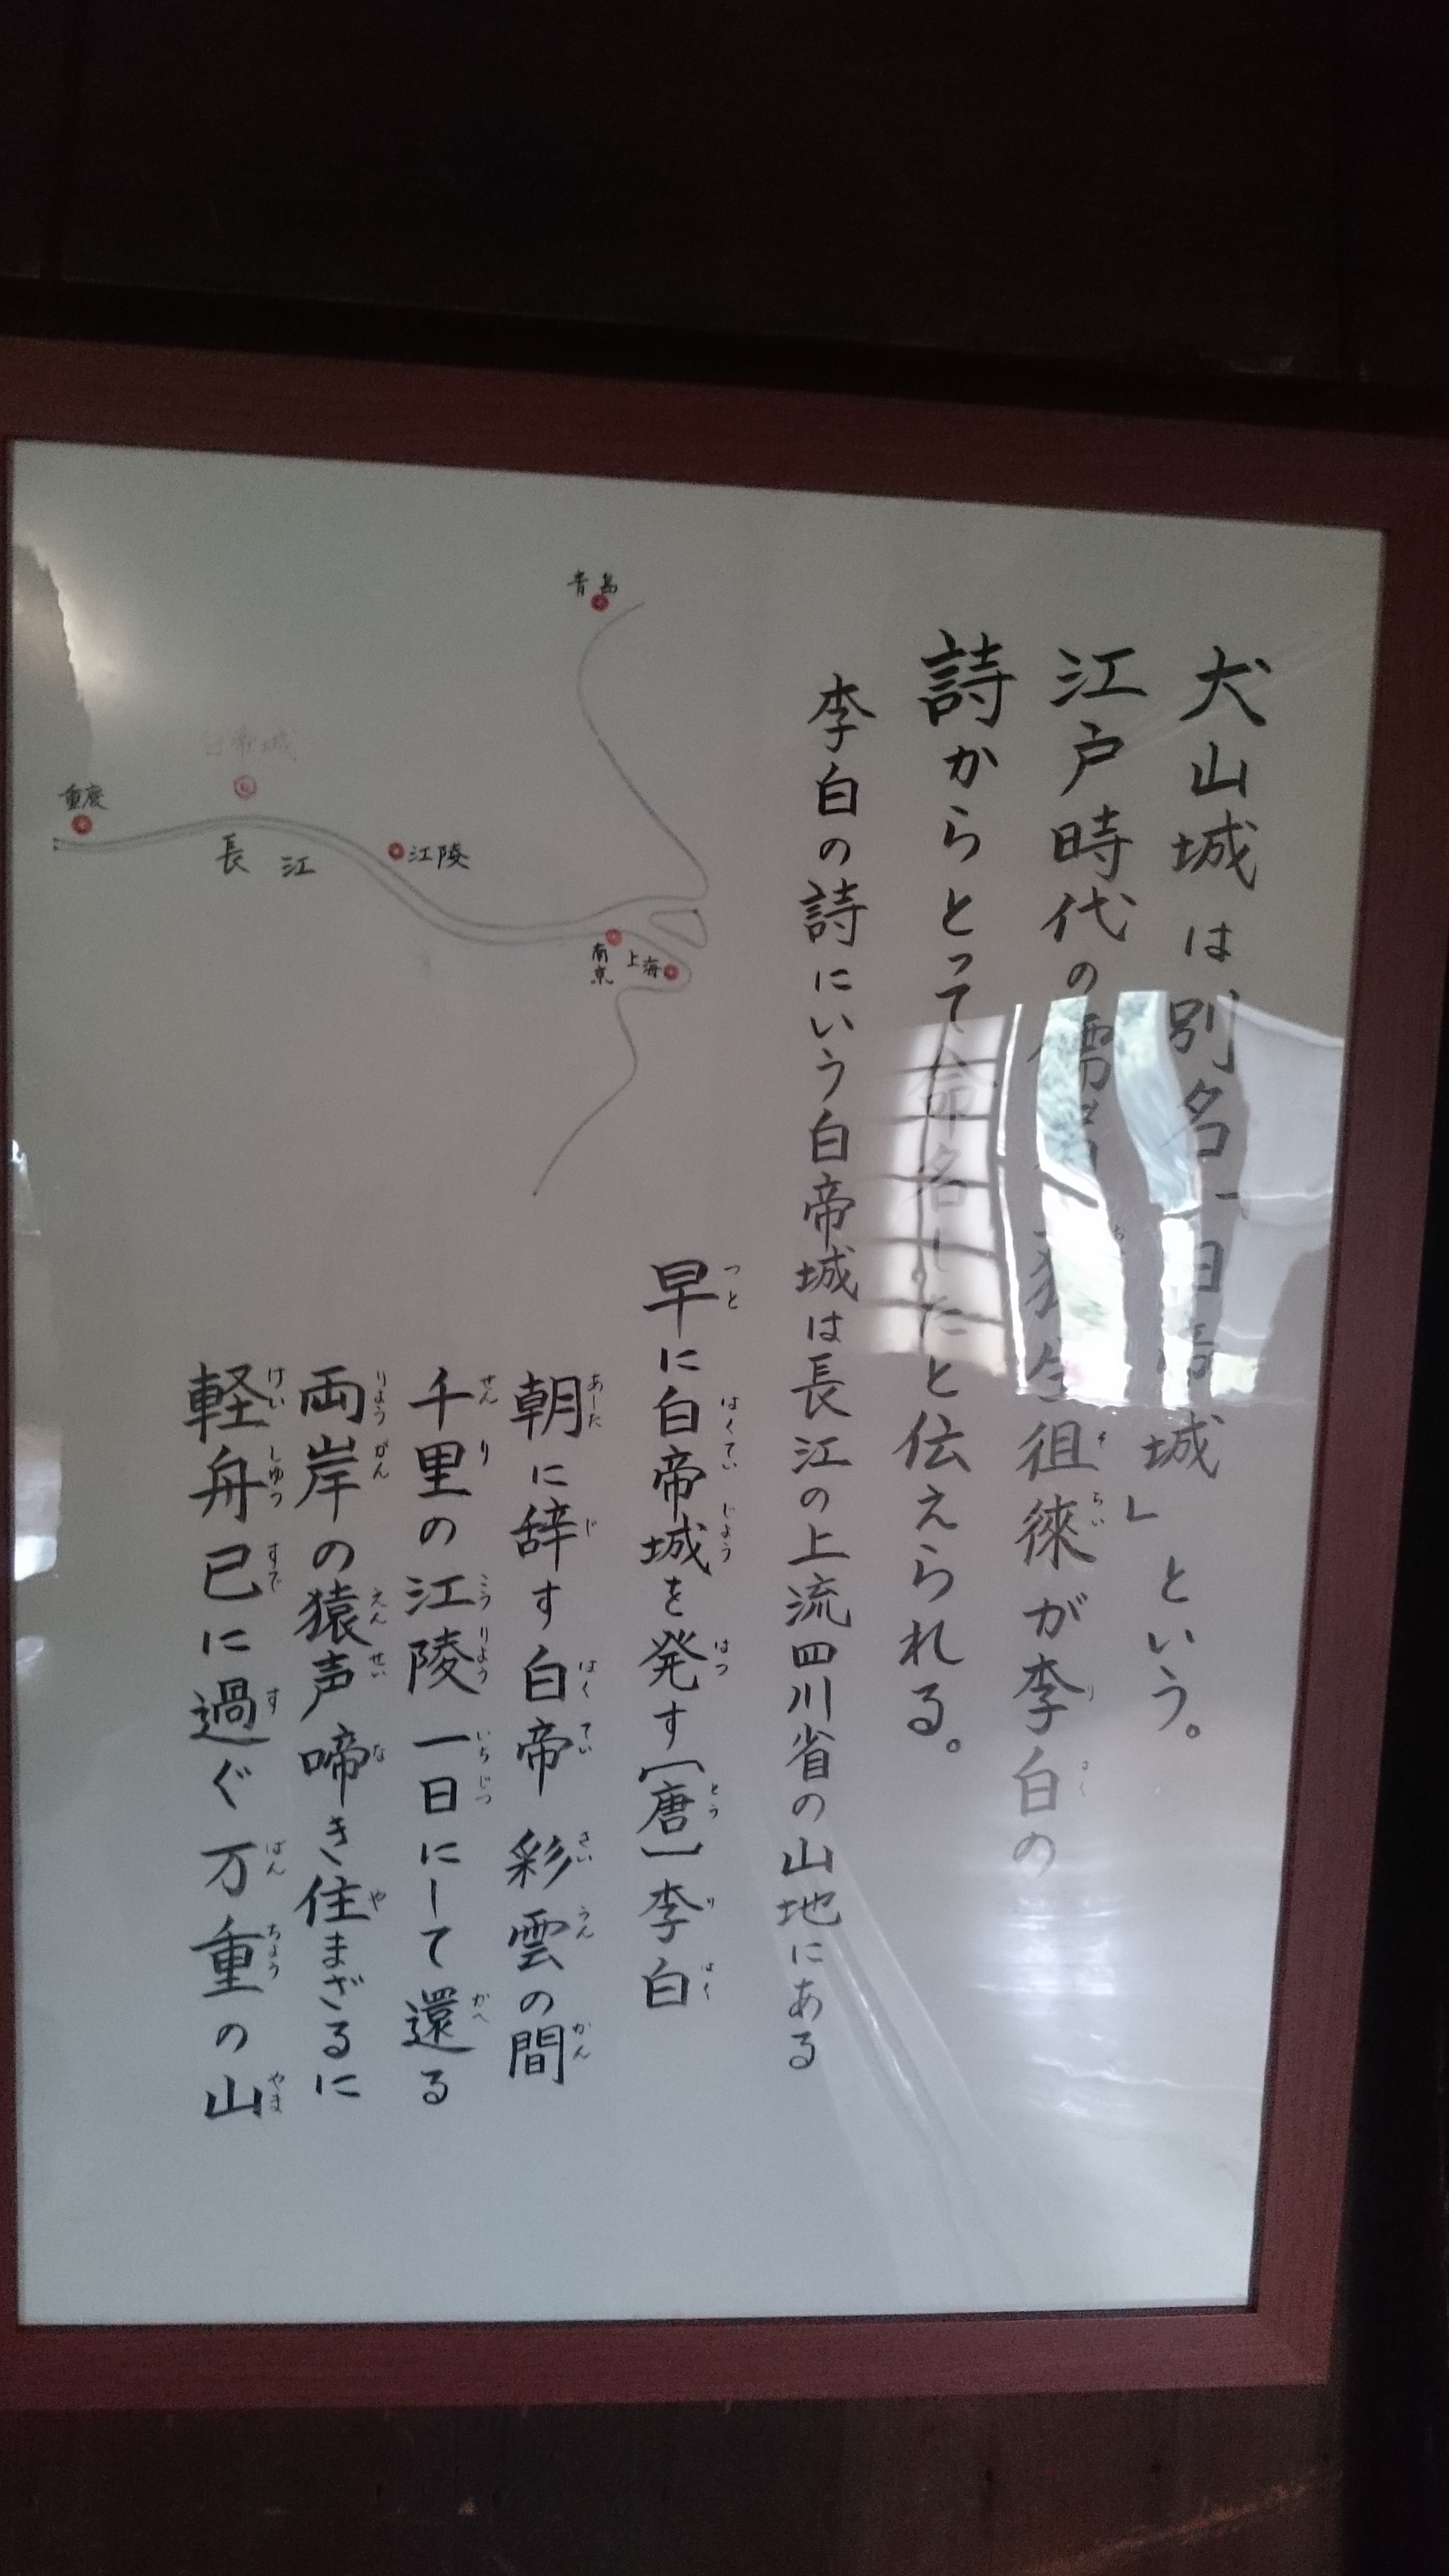 犬山城は別名「白帝城」という。
江戸時代の儒 生徂徠が李白の
詩からとって命名したと伝えられる。
李白の詩にいう白帝城は長江の上流四川省の山地にある
早に白帝城を発す[唐]李白
朝に辞す白帝 彩雲の間
千里の江陵 一日にして還る
両岸の猿声啼き住まざるに
軽舟已に過ぐ 万重の山
青島
白帝城
重慶
長江
江陵
南京
上海